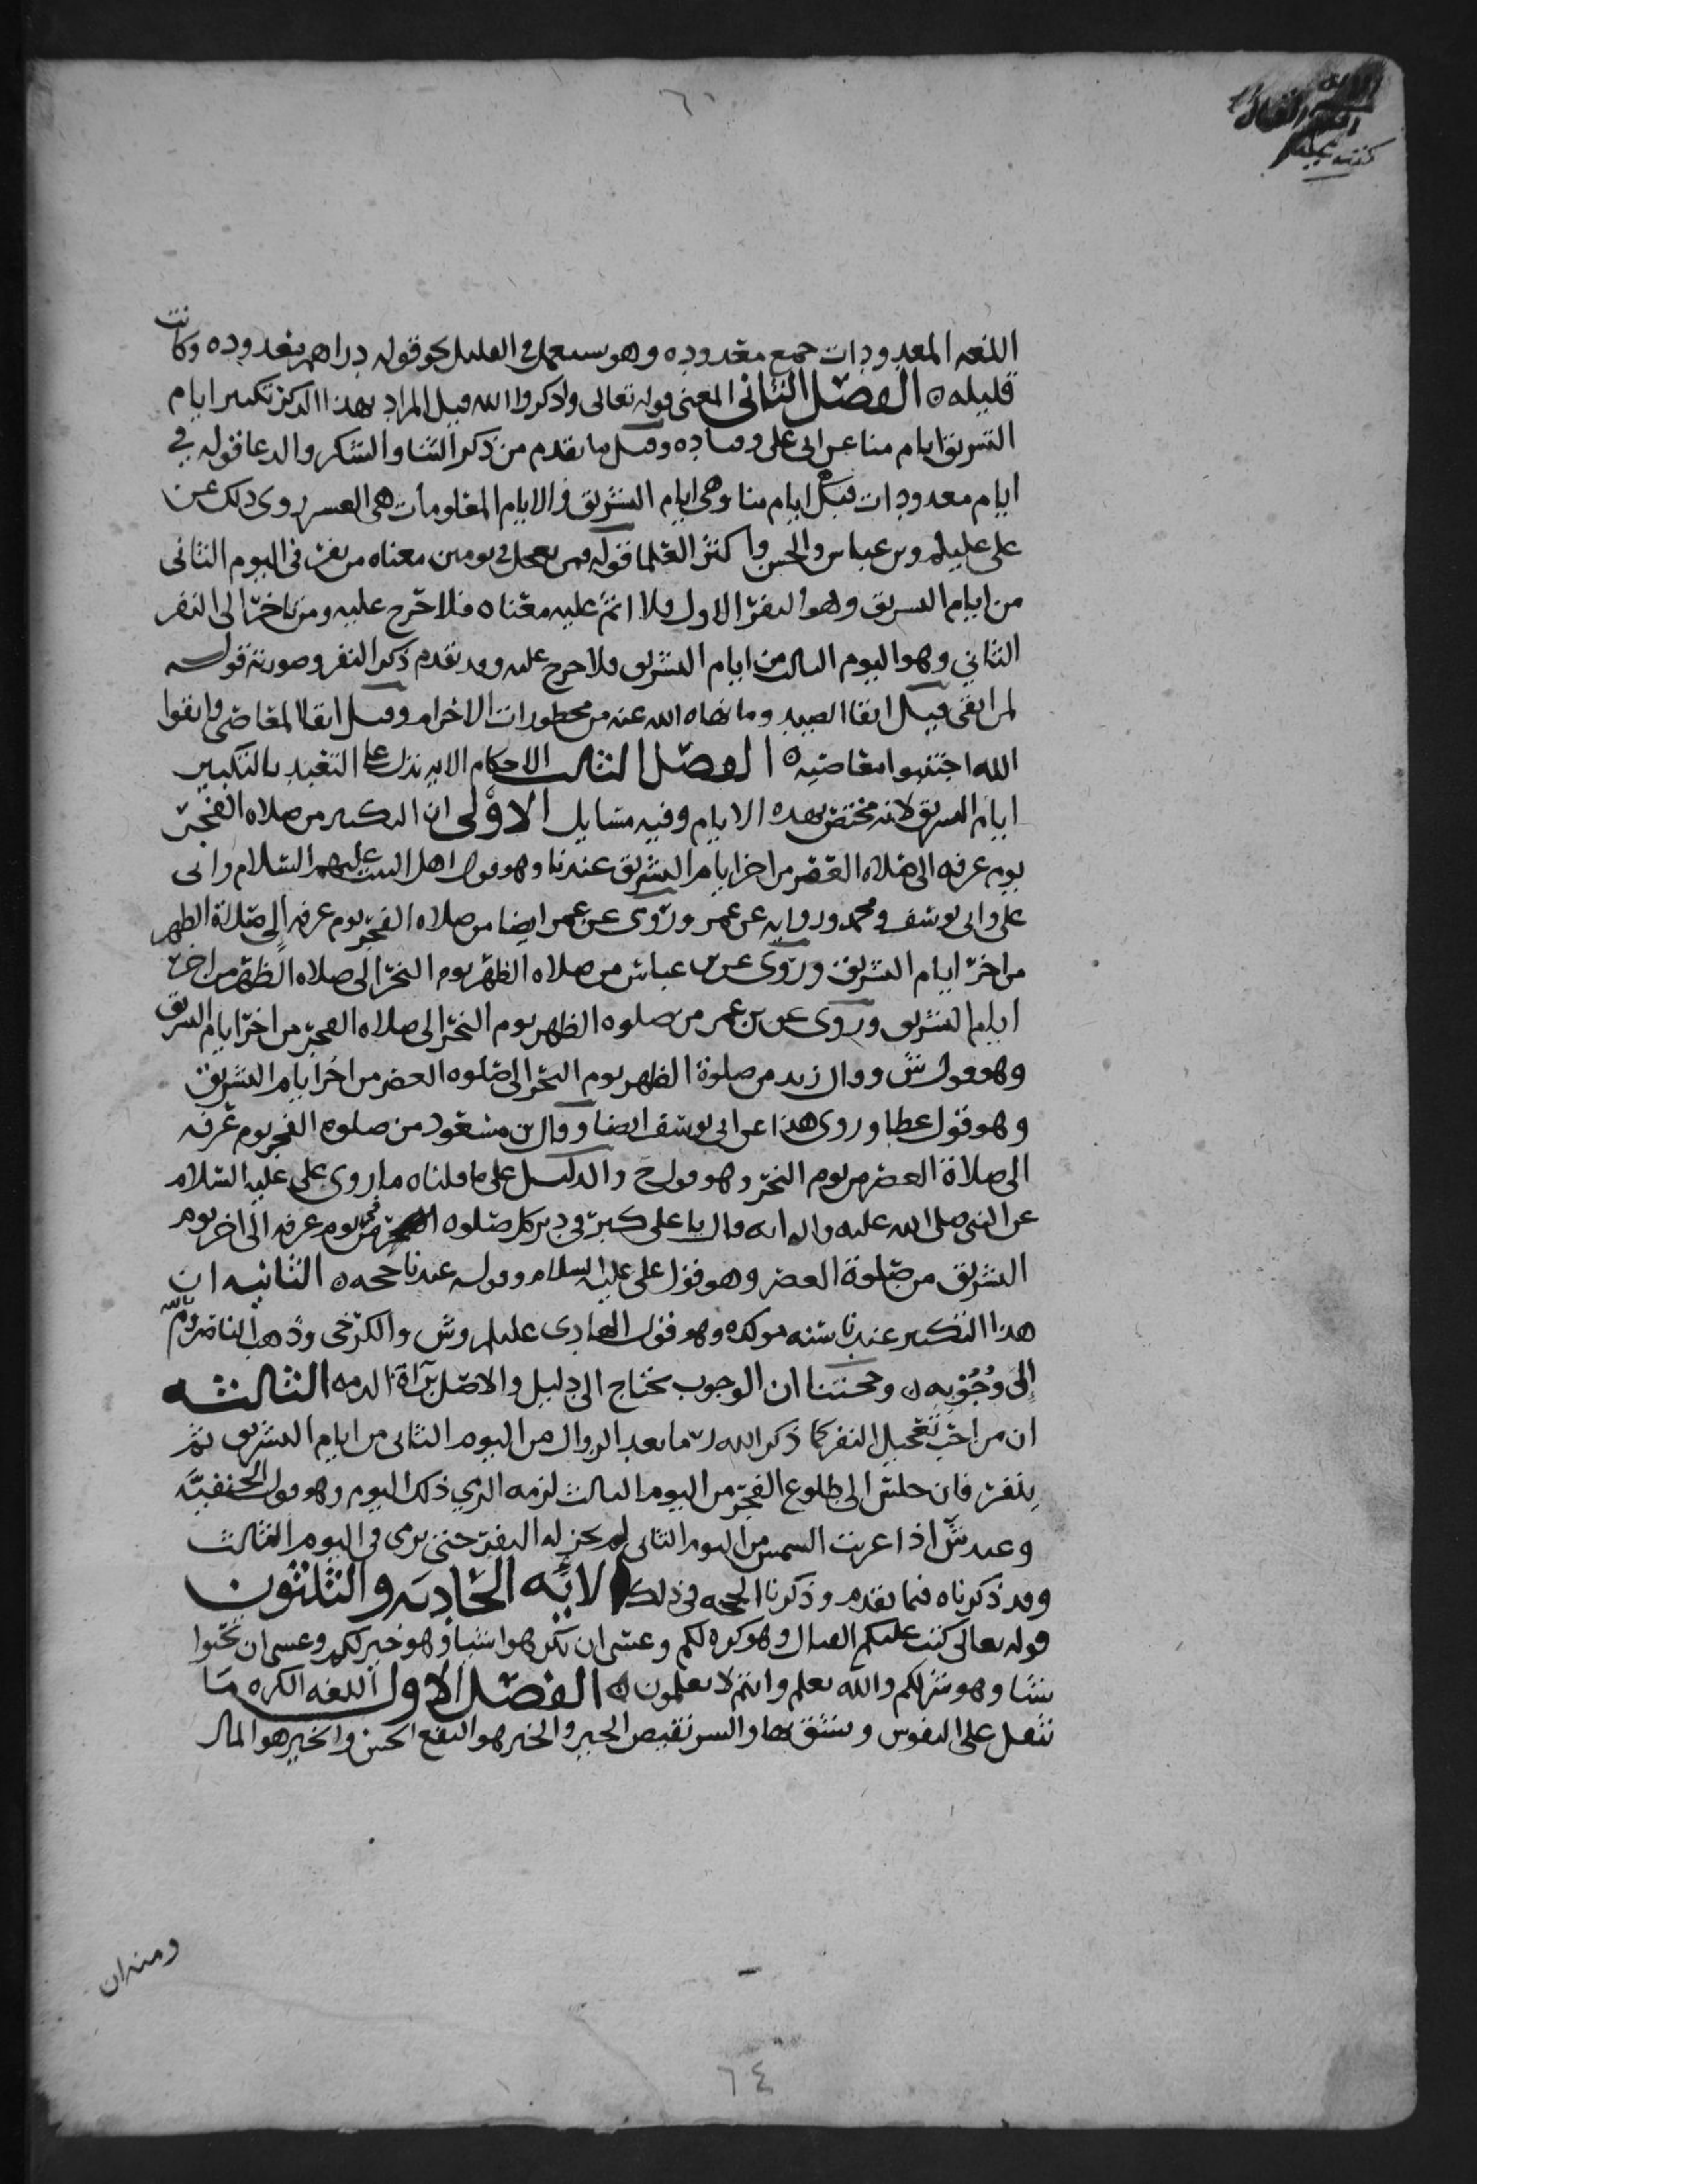 ٦١
اللغه المعدودات جمع معدوده وهو يستعمل في القليل نحو قوله دراهم معدوده وكانت
قليله ه الفصل الثاني المعنى قوله تعالى واذكروا الله قيل المراد بهذا الذكر تكبير ايام
التشريق ايام منا عن ابي علي وقتاده وقيل ما تقدم من ذكر الثنا والشكر والدعا قوله في
ايام معدودات قيل ايام منا وهي ايام التشريق والايام المعلومات هي العشر روي ذلك عن
علي عليلم وبن عباس والحسن واكثر العلما قوله فمن تعجل في يومين معناه من نفر في اليوم الثاني
من ايام التشريق وهو النفر الاول فلا اثم عليه معناه فلا حرج عليه ومن تاخر الى النفر
الثاني وهو اليوم الثالث من ايام التشريق فلا حرج عليه وقد تقدم ذكر النفر وصورته قوله
لمن اتقى قيل اتقا الصيد وما نهاه الله عنه من محظورات الاحرام وقيل اتقا المعاصي واتقوا
الله اجتنبوا معاصيه ه الفصل الثالث الاحكام الايه تدل على التعبد بالتكبير
ايام التشريق لانه مختص بهذه الايام وفيه مسايل الاولى ان التكبير من صلاه الفجر
يوم عرفه الى صلاه العصر من اخر ايام التشريق عندنا وهو قول اهل البيت عليهم السلام وابي
علي وابي يوسف ومحمد وروايه عن عمر وروي عن عمر ايضا من صلاه الفجر يوم عرفه الى صلاة الظهر
من اخر ايام التشريق وروي عن بن عباس من صلاه الظهر يوم النحر الى صلاه الظهر من اخر
ايام التشريق وروي عن بن عمر من صلوه الظهر يوم النحر الى صلاه الفجر من اخر ايام التشريق
وهو قول ش وقال زيد من صلوة الظهر يوم النحر الى صلوه العصر من اخر ايام التشريق
وهو قول عطا وروي هذا عن ابي يوسف ايضا وقال بن مسعود من صلوه الفجر يوم عرفه
الى صلاة العصر من يوم النحر وهو قول ح والدليل على ما قلناه ما روى علي عليه السلام
عن النبي صلى الله عليه واله انه قال يا علي كبر في دبر كل صلوه من فجر يوم عرفه الى اخر يوم
التشريق من صلوة العصر وهو قول علي عليه السلام وقوله عندنا حجه ه الثانيه ان
هذا التكبير عندنا سنه موكده وهو قول الهادي عليلم وش والكرخي وذهب الناصر وم بالله
الى وجوبه ه وحجتنا ان الوجوب يحتاج الى دليل والاصل برآة الذمه الثالثه
ان من احب تعجيل النفر كما ذكر الله رمى ما بعد الزوال من اليوم الثاني من ايام التشريق ثم
ينفر فان جلس الى طلوع الفجر من اليوم الثالث لزمه الرمي ذلك اليوم وهو قول الحنفيه
وعند ش اذا غربت الشمس من اليوم الثاني لم يجز له النفر حتى يرمي في اليوم الثالث
وقد ذكرناه فيما تقدم وذكرنا الحجه في ذلك الايه الحاديه والثلثون
قوله تعالى كتب عليكم القتال وهو كره لكم وعسى ان تكرهوا شيا وهو خير لكم وعسى ان تحبوا
شيا وهو شر لكم والله يعلم وانتم لا تعلمون ه الفصل الاول اللغه الكره ما
تثقل على النفوس ويشق بها والشر نقيض الخير والخير هو النفع الحسن والخير هو المال
ومنه ان
٦٤